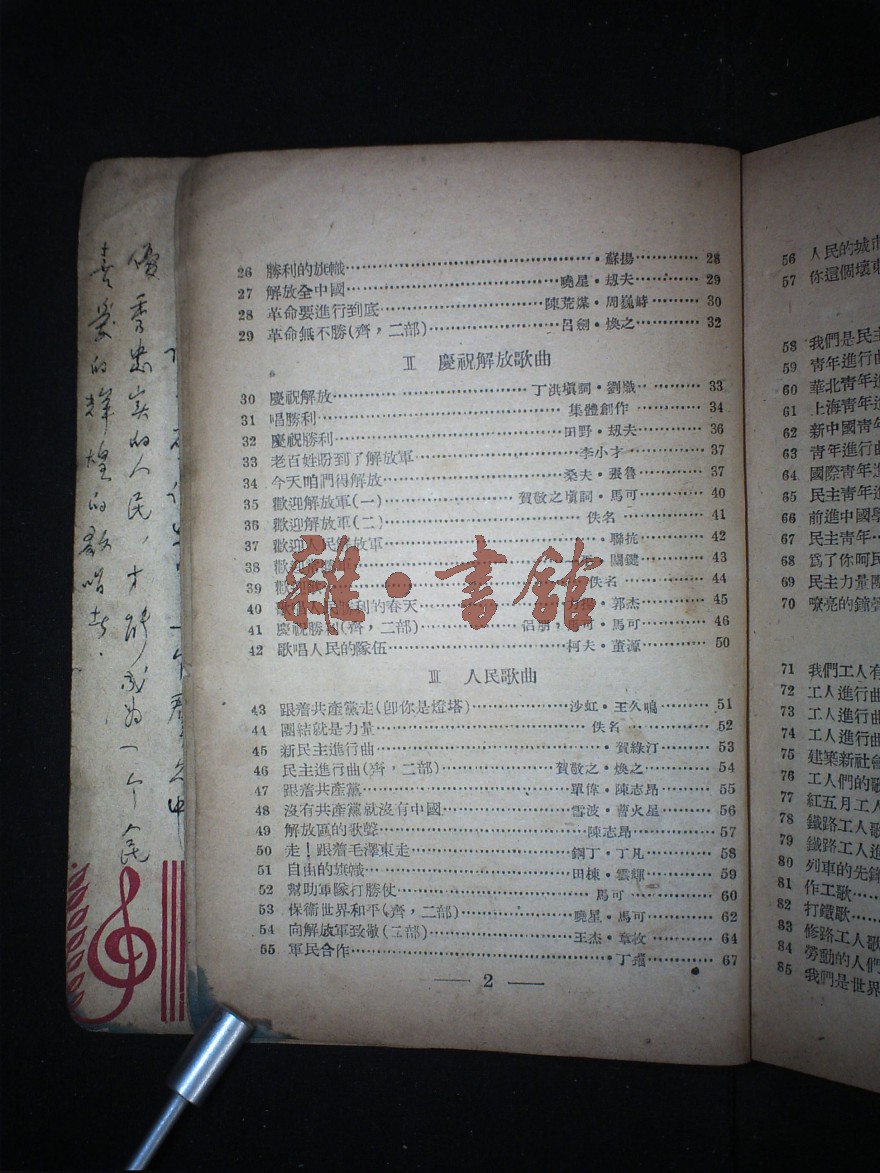 26 勝利的旗幟………蘇揚………28
27 解放全中國………曉星・劫夫………29
28 革命要進行到底………陳荒煤・周巍峙………30
29 革命無不勝(齊，二部)………呂劍・煥之………32
II 慶祝解放歌曲
30 慶祝解放………丁洪填詞・劉熾………33
31 唱勝利………集體創作………34
32 慶祝勝利………田野・劫夫………36
33 老百姓盼到了解放軍………李小才………37
34 今天咱們得解放………桑夫・張魯………37
35 歡迎解放軍(一)………賀敬之填詞・馬可………40
36 歡迎解放軍(二)………佚名………41
37 歡迎人民解放軍………聯抗………42
38 歡迎………關鍵………43
39 歡迎………佚名………44
40 人民勝利的春天………郭杰………45
41 慶祝勝利(齊，二部)………侶朋，馬可・馬可………46
42 歌唱人民的隊伍………柯夫・董源………50
III 人民歌曲
43 跟着共產黨走(卽你是燈塔)………沙虹・王久鳴………51
44 團結就是力量………佚名………52
45 新民主進行曲………賀綠汀………53
46 民主進行曲(齊，二部)………賀敬之・煥之………54
47 跟着共產黨………單偉・陳志昂………55
48 沒有共產黨就沒有中國………雪波・曹火星………56
49 解放區的歌聲………陳志昂………57
50 走！跟着毛澤東走………鋼丁・丁凡………58
51 自由的旗幟………田棟・雲輝………59
52 幫助軍隊打勝仗………馬可………60
53 保衛世界和平(齊，二部)………曉星・馬可………62
54 向解放軍致敬(二部)………王杰・章枚………64
55 軍民合作………丁璠………67
— 2 —
雜・書館
優秀忠实的人民，才能成为一个人民
喜爱的辉煌的歌唱者．
56 人民的城市
57 你這個壞東
58 我們是民主
59 青年進行曲
60 華北青年進
61 上海青年進
62 新中國青年
63 青年進行曲
64 國際青年進
65 民主青年進
66 前進中國學
67 民主青年…
68 爲了你呵民
69 民主力量團
70 嘹亮的鐘聲
71 我們工人有
72 工人進行曲
73 工人進行曲
74 工人進行曲
75 建築新社會
76 工人們的歌
77 紅五月工人
78 鐵路工人歌
79 鐵路工人進
80 列車的先鋒
81 作工歌……
82 打鐵歌……
83 修路工人歌
84 勞動的人們
85 我們是世界